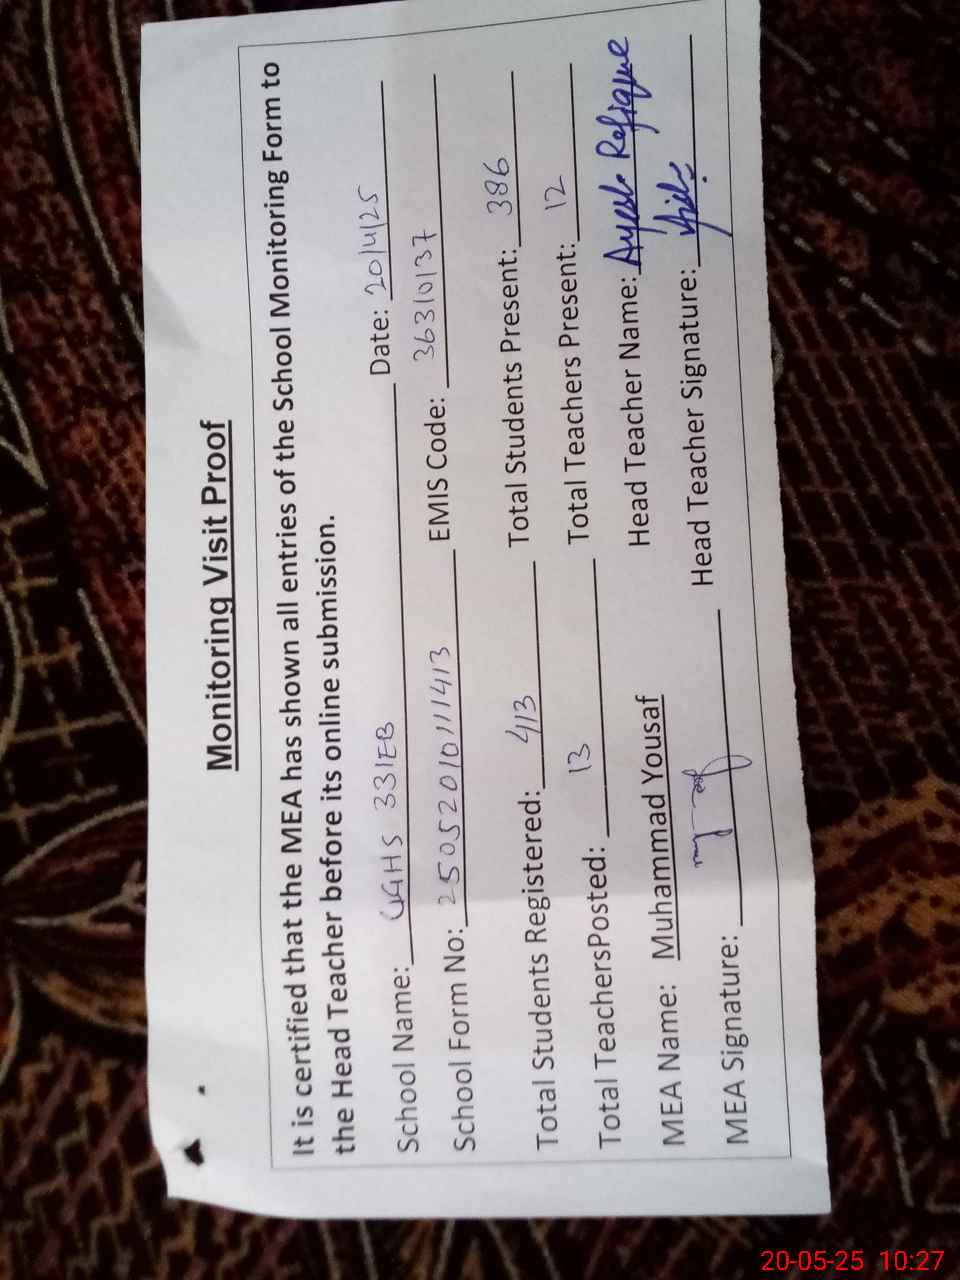 Monitoring Visit Proof
It is certified that the MEA has shown all entries of the School Monitoring Form to
the Head Teacher before its online submission.
School Name: GGHS 331EB Date: 20/4/25
School Form No: 2505201011413 EMIS Code: 36310137
Total Students Registered: 413 Total Students Present: 386
Total TeachersPosted: 13 Total Teachers Present: 12
MEA Name: Muhammad Yousaf Head Teacher Name: Ayesha Refique
MEA Signature: Head Teacher Signature:
20-05-25 10:27